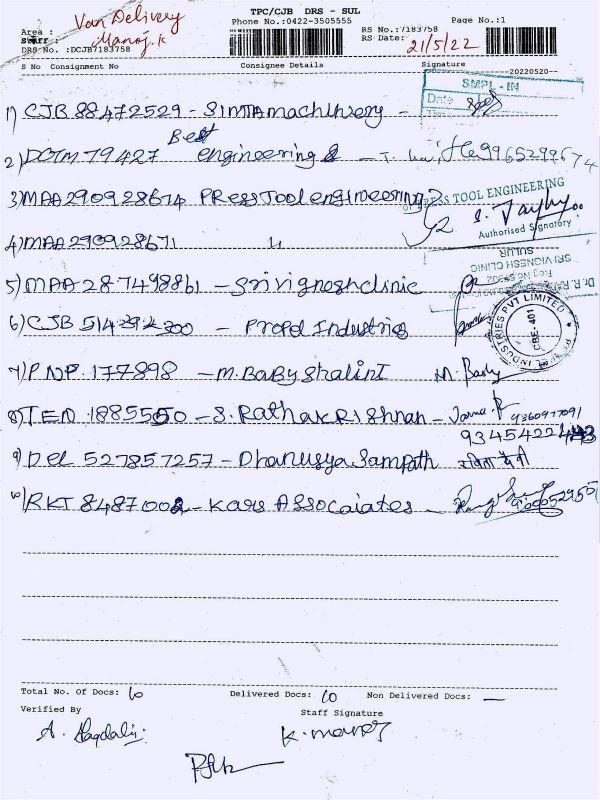 TPC/CJB DRS - SUL
Van Delivery
Phone No.:0422-3505555
Page No.:1
Area :
RS No.:7183758
Staff :
Manoj.k
RS Date:
21/5/22
DRS No. :DCJB7183758
S No Consignment No Consignee Details Signature
20220520--
SMPL-IN
Date
1) CJB 88472529 - SIMTA machinery -
Best
2) DOTM 79427 engineering - 9965299674
3) MAA290928674 PRess Tool engineering
PRESS TOOL ENGINEERING
Authorised Signatory
4) MAA290928671 "
SULUR
SRI VIGNESH CLINIC
5) MAA287498861 - Srivigneshclinic
6) CJB 514292300 - Propel Industries
INDUSTRIES PVT LIMITED
CBE-401
7) PNP.177898 - M.BaBy Shalini M. Baby
8) TEN 1885550 - S. Rathakrishnan - 9360977091
9) Del 527857257 - Dhanusya Sampath
10) RKT 8487002 - Kars Assocaiates -
Total No. Of Docs: 10 Delivered Docs: 10 Non Delivered Docs: —
Verified By Staff Signature
K. manoj